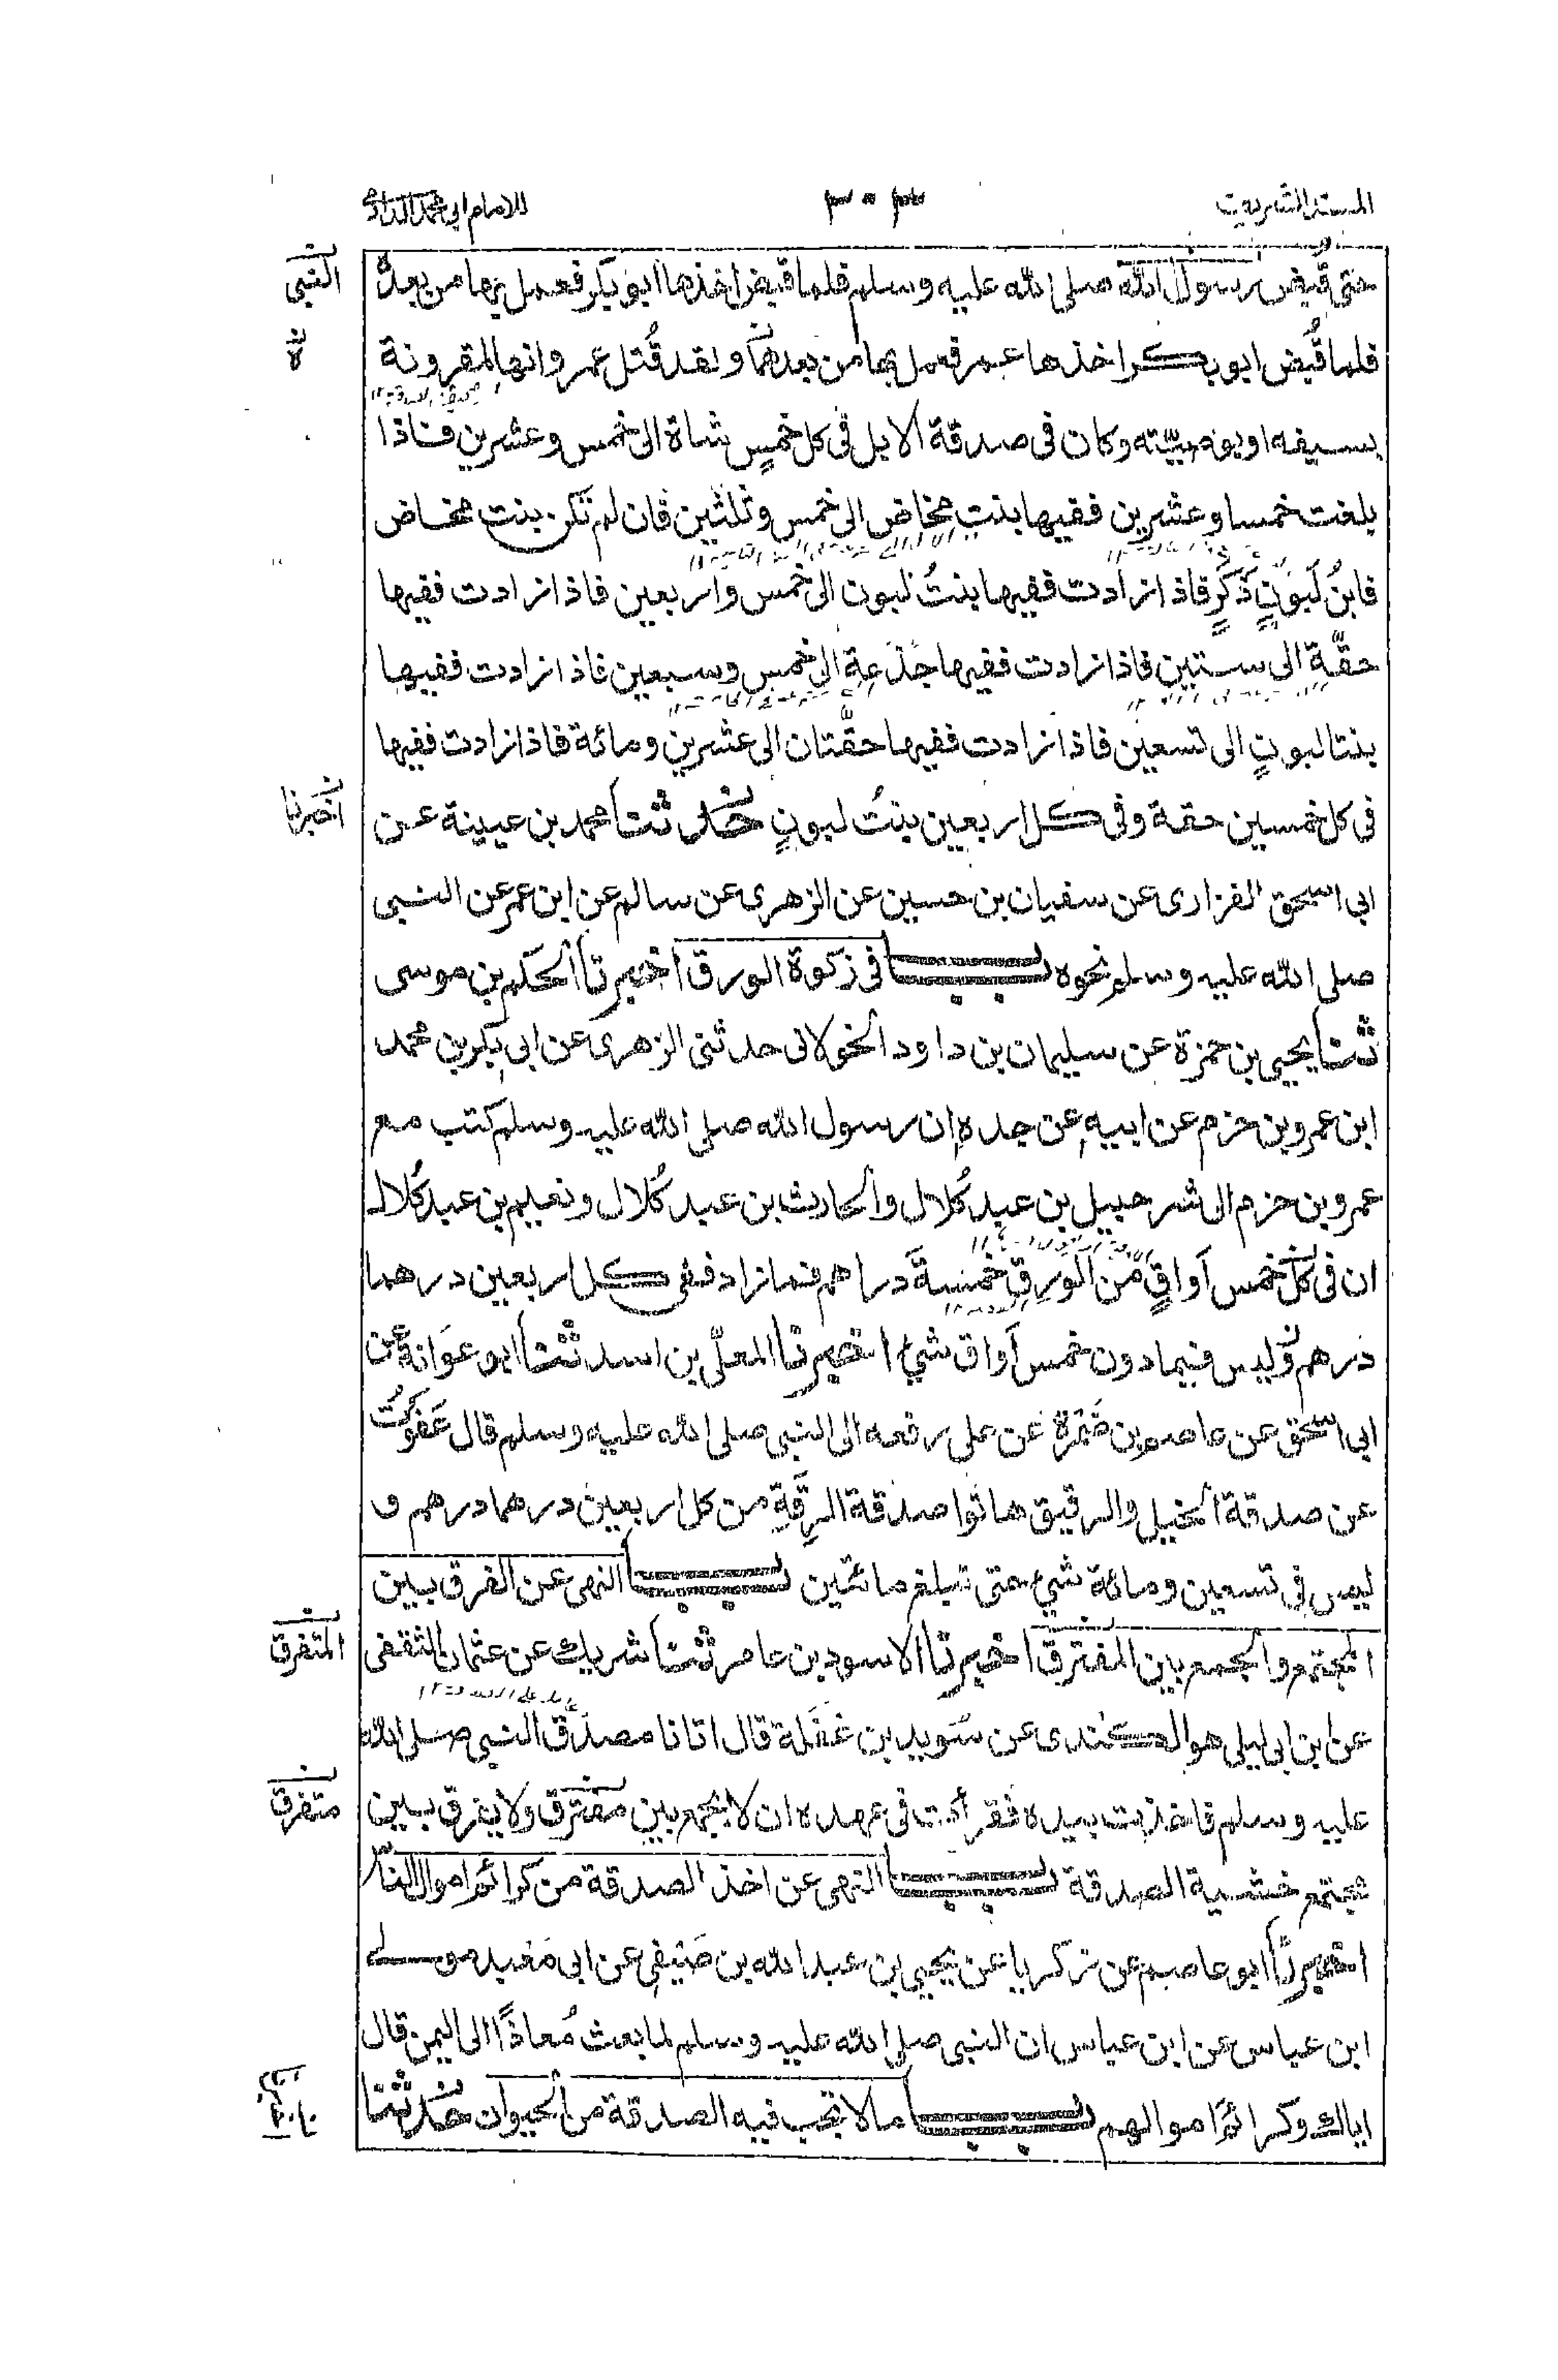 المسند الشريف ٢٠٣ للامام ابي محمد الدارمي
حتى قُبِض رسول الله صلى الله عليه وسلم فلما قبض اخذها ابو بكر فعمل بها من بعده
النبى
فلما قُبض ابو بكر اخذها عمر فعمل بها من بعدهما ولقد قُتل عمر وانها لمقرونة
بسيفه او بوصيّته وكان فى صدقة الابل فى كل خمسٍ شاة الى خمس وعشرين فاذا
بلغت خمسا وعشرين ففيها بنت مخاض الى خمس وثلثين فان لم تكن بنت مخاض
فابنُ لَبُونٍ ذَكَرٍ فاذا زادت ففيها بنتُ لبون الى خمس واربعين فاذا زادت ففيها
حقّة الى ستين فاذا زادت ففيها جَذَعة الى خمس وسبعين فاذا زادت ففيها
بنتا لبونٍ الى تسعين فاذا زادت ففيها حقّتان الى عشرين ومائة فاذا زادت ففيها
فى كل خمسين حقة وفى كل اربعين بنتُ لبونٍ حدثنا محمد بن عيينة عن
اخبرنا
ابى اسحق الفزارى عن سفيان بن حسين عن الزهرى عن سالم عن ابن عمر عن النبى
صلى الله عليه وسلم نحوه باب فى زكوة الورق اخبرنا الحكم بن موسى
ثنا يحيى بن حمزة عن سليمان بن داود الخولانى حدثنى الزهرى عن ابى بكر بن محمد
ابن عمرو بن حزم عن ابيه عن جده ان رسول الله صلى الله عليه وسلم كتب مع
عمرو بن حزم الى شرحبيل بن عبد كُلال والحارث بن عبد كُلال ونعيم بن عبد كُلال
ان فى كل خمس أواقٍ من الورِقِ خمسةَ دراهم فما زاد ففى كل اربعين درهما
درهم وليس فيما دون خمس أواق شئ اخبرنا المعلّى بن اسد ثنا ابو عوَانة عن
ابى اسحق عن عاصم بن ضَمْرة عن على رفعه الى النبى صلى الله عليه وسلم قال عَفَوتُ
عن صدقة الخيل والرقيق هاتوا صدقة الرِقَةِ من كل اربعين درهما درهم و
ليس فى تسعين ومائة شئ حتى تبلغ مائتين باب النهى عن الفرق بين
المجتمع والجمع بين المفترق اخبرنا الاسود بن عامر ثنا شريك عن عثمان الثقفى
المتفرق
عن ابن ابى ليلى هو الكندى عن سُويد بن غَفَلة قال اتانا مصدّق النبى صلى الله
عليه وسلم فاخذت بيده فقرأت فى عهده ان لا يجمع بين مفترق ولا يفرق بين
متفرق
مجتمع خشية الصدقة باب النهى عن اخذ الصدقة من كرائم اموال الناس
اخبرنا ابو عاصم عن زكريا عن يحيى بن عبد الله بن صَيْفى عن ابى مَعْبد مولى
ابن عباس عن ابن عباس ان النبى صلى الله عليه وسلم لما بعث مُعاذًا الى اليمن قال
اياك وكرائمَ اموالهم باب ما لا تجب فيه الصدقة من الحيوان حدثنا